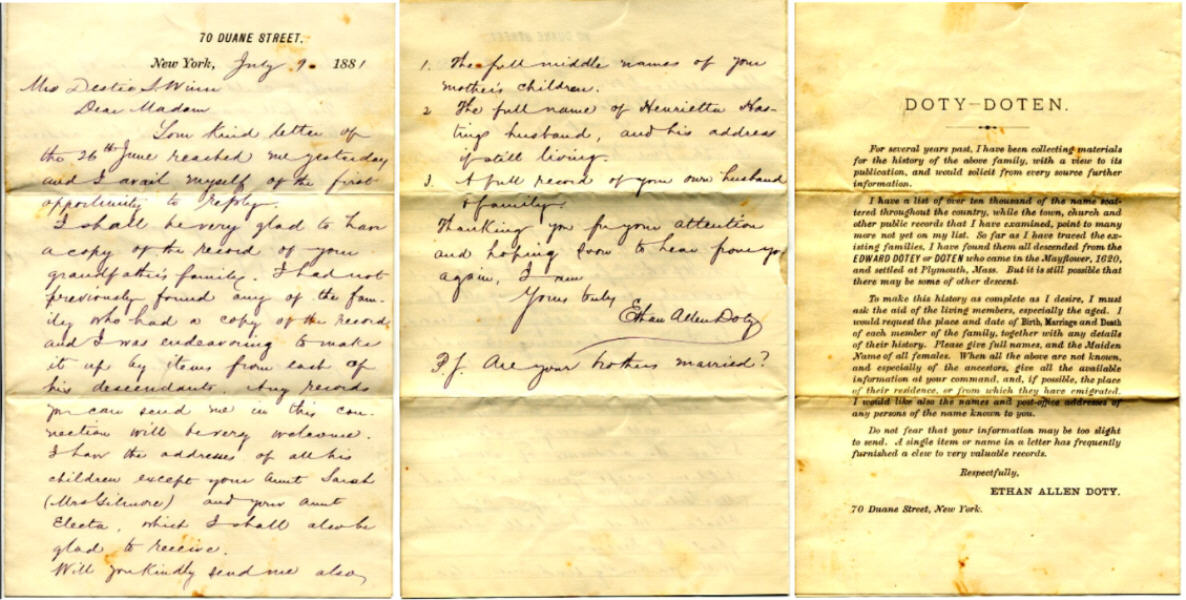 70 DUANE STREET.
New York, July 9 1881
Mrs Destia S. Winn
Dear Madam
Your Kind letter of
the 26th June reached me yesterday
and I avail myself of the first
opportunity to reply.
I shall be very glad to have
a copy of the record of your
grandfather's family. I had not
previously found any of the fam-
ily who had a copy of the record
and I was endeavoring to make
it up by items from each of
his descendants Any records
you can send me in this con-
nection will be very welcome.
I have the addresses of all his
children except your Aunt Sarah
(Mrs Gilmore) and your aunt
Electa, which I shall also be
glad to receive.
Will you kindly send me also,
1. The full middle names of your
mother's children.
2 The full name of Henrietta Has-
tings husband, and his address
if still living.
3. A full record of your own husband
& family.
Thanking you for your attention
and hoping soon to hear from you
again, I am
Yours truly
Ethan Allen Doty
P.S. Are your brothers married?
DOTY—DOTEN.
For several years past, I have been collecting materials
for the history of the above family, with a view to its
publication, and would solicit from every source further
information.
I have a list of over ten thousand of the name scat-
tered throughout the country, while the town, church and
other public records that I have examined, point to many
more not yet on my list. So far as I have traced the ex-
isting families, I have found them all descended from the
EDWARD DOTEY or DOTEN who came in the Mayflower, 1620,
and settled at Plymouth, Mass. But it is still possible that
there may be some of other descent.
To make this history as complete as I desire, I must
ask the aid of the living members, especially the aged. I
would request the place and date of Birth, Marriage and Death
of each member of the family, together with any details
of their history. Please give full names, and the Maiden
Name of all females. When all the above are not known,
and especially of the ancestors, give all the available
information at your command, and, if possible, the place
of their residence, or from which they have emigrated.
I would like also the names and post-office addresses of
any persons of the name known to you.
Do not fear that your information may be too slight
to send. A single item or name in a letter has frequently
furnished a clew to very valuable records.
Respectfully,
ETHAN ALLEN DOTY.
70 Duane Street, New York.